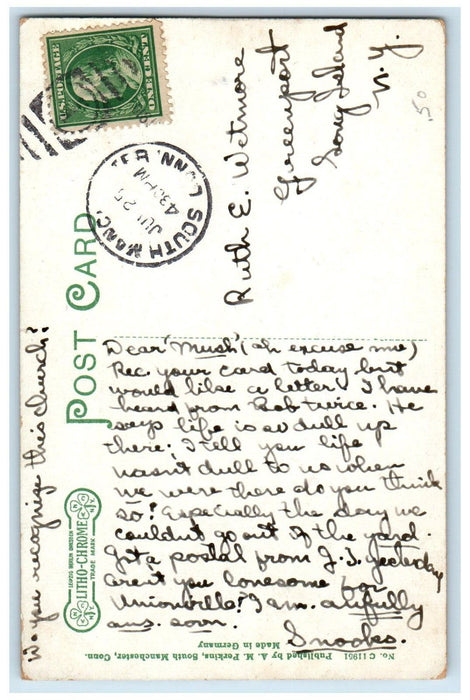 U.S. POSTAGE
ONE CENT
SOUTH MANCHESTER, CONN.
JUL 25
430 PM
POST CARD
Ruth E. Wetmore
Greenport
Long Island
N.Y.
50
Dear "Mush" (oh excuse me)
Rec. your card today but
would like a letter. I have
heard from Bob twice. He
says life is so dull up
there; I tell you life
wasn't dull to us when
we were there do you think
so? Especially the day we
couldn't go out of the yard.
Got a postal from J.T. yesterday
aren't you lonesome for
Unionville? I am. awfully
ans. soon.
Snooks.
Do you recognize this church?
LEIPZIG BERLIN DRESDEN
LITHO-CHROME
TRADE MARK
No. C 11951 Published by A. M. Perkins, South Manchester, Conn.
Made in Germany